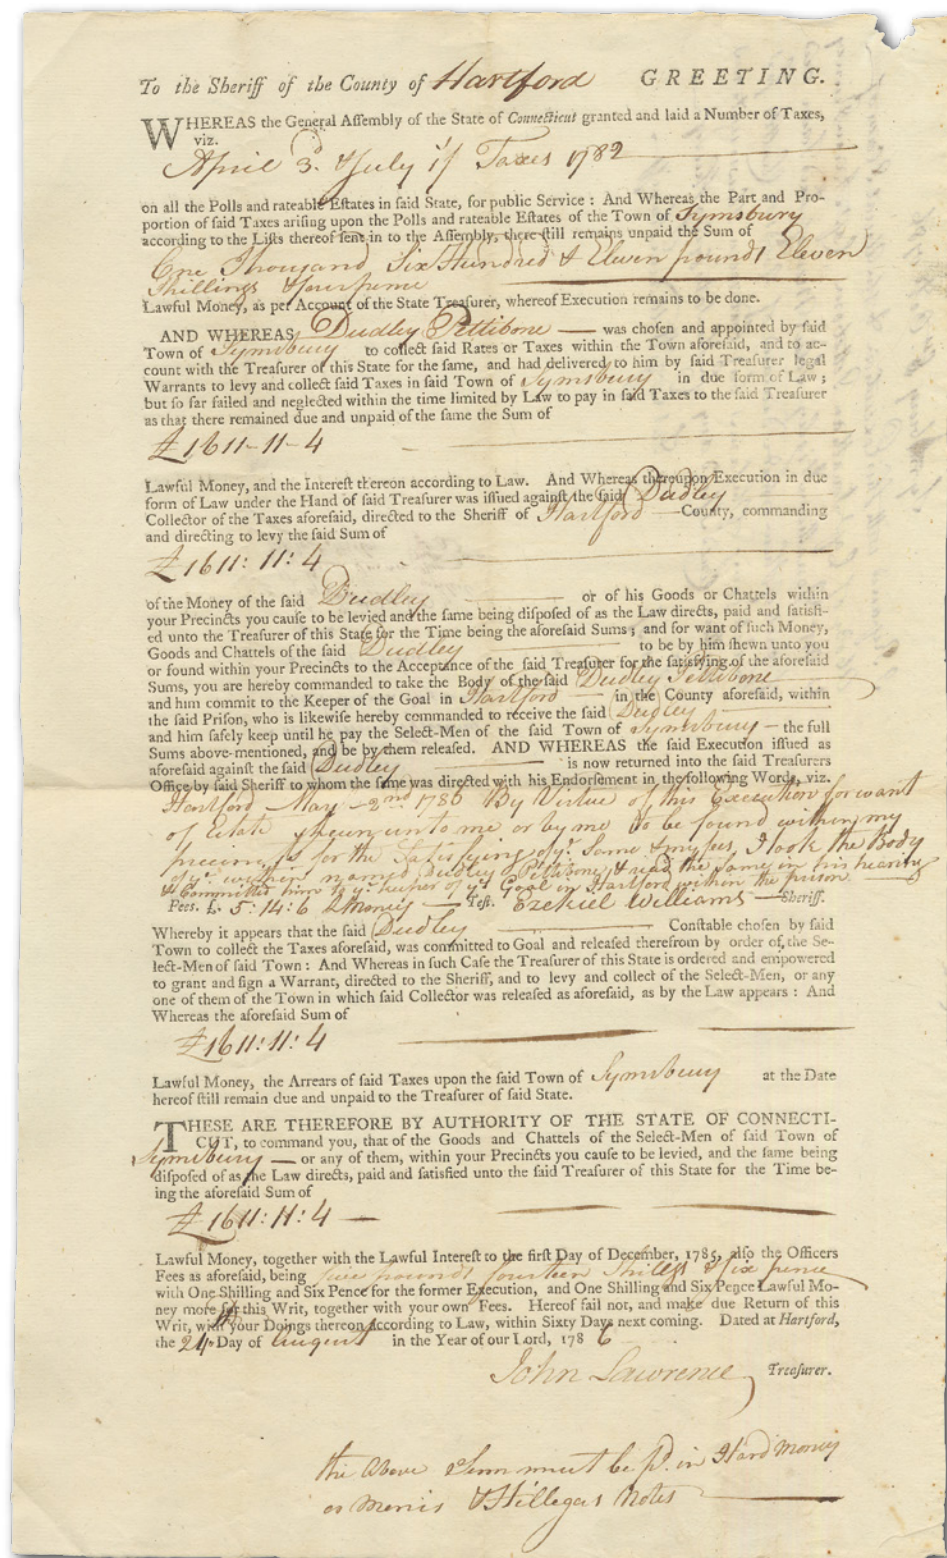 To the Sheriff of the County of Hartford GREETING.
WHEREAS the General Assembly of the State of Connecticut granted and laid a Number of Taxes,
viz.
April 3d. & July 1st Taxes 1782
on all the Polls and rateable Estates in said State, for public Service : And Whereas the Part and Pro-
portion of said Taxes arising upon the Polls and rateable Estates of the Town of Symsbury
according to the Lists thereof sent in to the Assembly, there still remains unpaid the Sum of
One Thousand Six Hundred & Eleven pounds Eleven
Shillings & four pence
Lawful Money, as per Account of the State Treasurer, whereof Execution remains to be done.
AND WHEREAS Dudley Pettibone — was chosen and appointed by said
Town of Symsbury to collect said Rates or Taxes within the Town aforesaid, and to ac-
count with the Treasurer of this State for the same, and had delivered to him by said Treasurer legal
Warrants to levy and collect said Taxes in said Town of Symsbury in due form of Law ;
but so far failed and neglected within the time limited by Law to pay in said Taxes to the said Treasurer
as that there remained due and unpaid of the same the Sum of
£1611-11-4
Lawful Money, and the Interest thereon according to Law. And Whereas thereupon Execution in due
form of Law under the Hand of said Treasurer was issued against the said Dudley
Collector of the Taxes aforesaid, directed to the Sheriff of Hartford County, commanding
and directing to levy the said Sum of
£1611:11:4
of the Money of the said Dudley or of his Goods or Chattels within
your Precincts you cause to be levied and the same being disposed of as the Law directs, paid and satisfi-
ed unto the Treasurer of this State for the Time being the aforesaid Sums ; and for want of such Money,
Goods and Chattels of the said Dudley to be by him shewn unto you
or found within your Precincts to the Acceptance of the said Treasurer for the satisfying of the aforesaid
Sums, you are hereby commanded to take the Body of the said Dudley Pettibone
and him commit to the Keeper of the Goal in Hartford in the County aforesaid, within
the said Prison, who is likewise hereby commanded to receive the said Dudley
and him safely keep until he pay the Select-Men of the said Town of Symsbury — the full
Sums above-mentioned, and be by them released. AND WHEREAS the said Execution issued as
aforesaid against the said Dudley is now returned into the said Treasurers
Office by said Sheriff to whom the same was directed with his Endorsement in the following Words, viz.
Hartford May 2nd 1786 By Virtue of this Execution for want
of Estate shewn unto me or by me to be found within my
precincts for the Satisfying of ye. Same & my fees, I took the Body
of ye. within named Dudley Pettibone, & read the Same in his hearing
& Committed him to ye. keeper of ye. Goal in Hartford within the prison
Fees. £. 5:14:6 Money — Test. Ezekiel Williams — Sheriff.
Whereby it appears that the said Dudley Constable chosen by said
Town to collect the Taxes aforesaid, was committed to Goal and released therefrom by order of, the Se-
lect-Men of said Town : And Whereas in such Case the Treasurer of this State is ordered and empowered
to grant and sign a Warrant, directed to the Sheriff, and to levy and collect of the Select-Men, or any
one of them of the Town in which said Collector was released as aforesaid, as by the Law appears : And
Whereas the aforesaid Sum of
£1611:11:4
Lawful Money, the Arrears of said Taxes upon the said Town of Symsbury at the Date
hereof still remain due and unpaid to the Treasurer of said State.
THESE ARE THEREFORE BY AUTHORITY OF THE STATE OF CONNECTI-
CUT, to command you, that of the Goods and Chattels of the Select-Men of said Town of
Symsbury — or any of them, within your Precincts you cause to be levied, and the same being
disposed of as the Law directs, paid and satisfied unto the said Treasurer of this State for the Time be-
ing the aforesaid Sum of
£1611:11:4 —
Lawful Money, together with the Lawful Interest to the first Day of December, 1785, also the Officers
Fees as aforesaid, being five pounds fourteen Shillgs & six pence
with One Shilling and Six Pence for the former Execution, and One Shilling and Six Pence Lawful Mo-
ney more for this Writ, together with your own Fees. Hereof fail not, and make due Return of this
Writ, with your Doings thereon according to Law, within Sixty Days next coming. Dated at Hartford,
the 24th Day of August in the Year of our Lord, 1786
John Lawrence Treasurer.
the above Sum must be pd. in Hard money
or Morris & Hillegas Notes